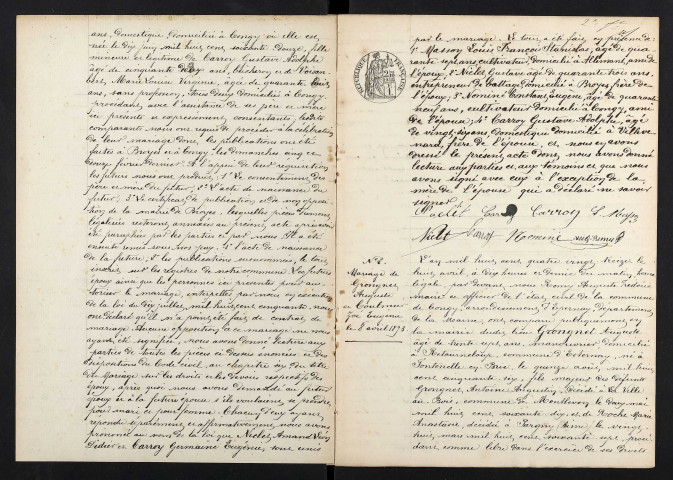 ans, domestique domiciliée à Congy où elle est
née le dix juin mil huit cent soixante douze, fille
mineure et légitime de Carroy Gustave Adolphe
âgé de cinquante deux ans, et de
Marie Louise Virginie, âgée de quarante
ans, sans profession, tous deux domiciliés à Congy,
procédant avec l'assistance de ses père et mère
ici présents et expressément consentants, lesdits
comparants nous ont requis de procéder à la célébration
de leur mariage dont les publications ont été
faites à Broyes et à Congy, les dimanches cinq et
douze février dernier. A l'appui de leur réquisition
les futurs nous ont produit: 1° Le consentement des
père et mère du futur; 2° L'acte de naissance du
futur; 3° Le certificat de publication et de non opposition
de la mairie de Broyes. Lesquelles pièces dûment
légalisées resteront annexées au présent acte après avoir
été paraphées par les parties et par nous. Il a été
ensuite remis sous nos yeux: 1° L'acte de naissance
de la future; 2° Les publications susénoncées, le tout
inscrit sur les registres de notre commune. Les futurs
époux ainsi que les personnes ici présentes pour autoriser
le mariage, interpellés par nous en exécution
de la loi du dix juillet mil huit cent cinquante, nous
ont déclaré qu'il n'a point été fait de contrat de
mariage. Aucune opposition à ce mariage ne nous
ayant été signifiée, nous avons donné lecture aux
parties de toutes les pièces ci-dessus énoncées et des
dispositions du Code civil, au chapitre six du titre
du Mariage sur les droits et les devoirs respectifs des
époux, après quoi nous avons demandé au futur
époux et à la future épouse s'ils voulaient se prendre
pour mari et pour femme. Chacun d'eux ayant
répondu séparément et affirmativement, nous avons
prononcé au nom de la loi que Niclet Amand
Didier et Carroy Germaine Eugénie, sont unis
par le mariage. De tout, acte fait en présence de
1° Masson Louis François Stanislas, âgé de quarante
sept ans, cultivateur, domicilié à Allemant, ami de
l'époux; 2° Niclet Gustave âgé de quarante trois ans,
entrepreneur de battage domicilié à Broyes, frère de
l'époux; 3° Constant, âgé de quarante
neuf ans, cultivateur domicilié à Congy, ami
de l'épouse; 4° Carroy Gustave Adolphe, âgé
de vingt-six ans, domestique domicilié à Villevenard,
frère de l'épouse, et nous en avons
dressé le présent acte dont nous avons donné
lecture aux parties et aux témoins et que nous
avons signé avec eux à l'exception de la
mère de l'épouse qui a déclaré ne savoir
signer.
Niclet Carroy Carroy
Niclet Carroy
N° 2.
Mariage de
Grongnet
Auguste
et
Eugénie
le 8 avril 1893
L'an mil huit cent quatre vingt treize le
huit avril, à dix heures et demie du matin, heure
légale, par devant nous Rémy Auguste
maire et officier de l'état civil de la commune
de Congy, arrondissement d'Epernay, département
de la Marne, ont comparu publiquement en
la mairie dudit lieu Grongnet Auguste
âgé de trente sept ans, manouvrier, domicilié
à, commune d'Esternay, né à
Fontenelle en Brie, le quinze août mil huit
cent cinquante six, fils majeur des défunts
Grongnet Antoine Augustin, décédé à La Ville
au Bois, commune de Montlevon, le douze mai
mil huit cent soixante dix, et de Roche Marie
Anastasie, décédée à Pargny, Aisne, le vingt
huit mars mil huit cent soixante sept, procédant
comme libre dans l'exercice de ses droits